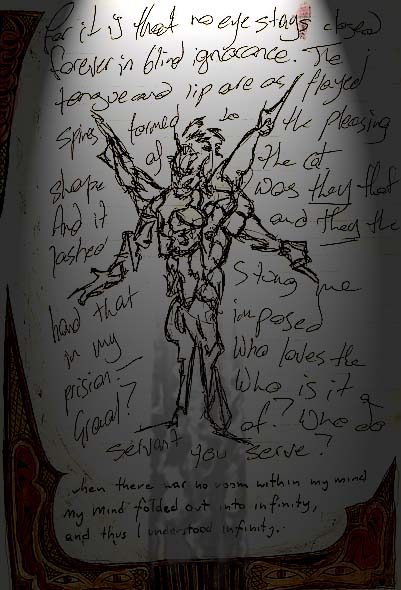 For it is that no eye stays closed
forever in blind ignorance. The
tongue and lip are as flayed
spines formed to the pleasing
shape of the cat
And it was they that
lashed and they the
Stong me
hard that imposed
in my Who loves the
prision— Who is it a
Graal? of? Who do
servant you serve?
when there was no room within my mind
my mind folded out into infinity,
and thus I understood infinity.